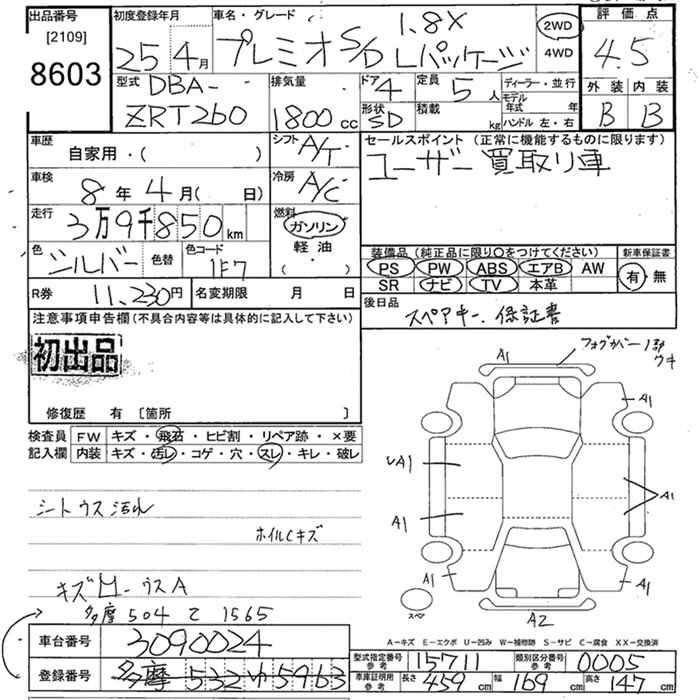 出品番号
[2109]
8603
初度登録年月
25年4月
車名・グレード
1.8X
プレミオ S/D Lパッケージ
2WD
4WD
評価点
4.5
外装 内装
B B
型式 DBA-
ZRT260
排気量
1800cc
ドア 4
形状 SD
定員 5人
積載 kg
ディーラー・並行
モデル年式 年
ハンドル 左・右
車歴
自家用・( )
シフト A/T
セールスポイント (正常に機能するものに限ります)
ユーザー買取り車
車検 8年4月( 日)
冷房 A/C
走行 3万9千850km
燃料
ガソリン
軽油
( ・ )
色 シルバー 色替
色コード 1F7
装備品 (純正品に限り○をつけてください)
PS PW ABS エアB AW
SR ナビ TV 本革
新車保証書
有・無
R券 11,230円
名変期限 月 日
後日品
スペアキー、保証書
注意事項申告欄(不具合内容等は具体的に記入して下さい)
初出品
修復歴 有〔箇所 〕
検査員
記入欄
FW キズ・飛石・ヒビ割・リペア跡・×要
内装 キズ・汚レ・コゲ・穴・スレ・キレ・破レ
シートウス汚れ
ホイルCキズ
多摩 504 て 1565
車台番号 3090024
登録番号 多摩 532 ゆ 5963
A1
フォグカバー1部
ウキ
A1
A1
A1
A1
A1
A1
スペア
A2
A-キズ E-エクボ U-凹み W-補修跡 S-サビ C-腐食 XX-交換済
型式指定番号
参考
15711
類別区分番号
参考
0005
車庫証明用
参考
長さ 459cm 幅 169cm 高さ 147cm